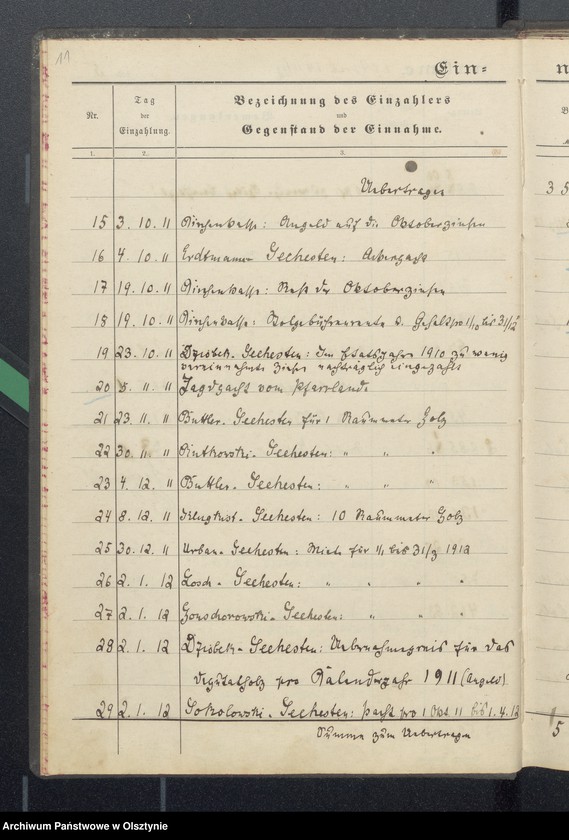 11
Ein=
Nr.
Tag
der
Einzahlung.
Bezeichnung des Einzahlers
und
Gegenstand der Einnahme.
1. 2. 3.
Uebertragen 35
15 3. 10. 11 Kirchenkasse: Angeld auf die Oktoberzinsen
16 4. 10. 11 Erdtmann Seehesten: Ackerpacht
17 19. 10. 11 Kirchenkasse: Rest der Oktoberzinsen
18 19. 10. 11 Kirchenkasse: 1/10 bis 31/12
19 23. 10. 11 Dziobek- Seehesten: Im Etatsjahre 1910 zu wenig
vereinnahmte Zinsen nachträglich eingezahlt
20 5. 11. 11 Jagdpacht vom Pfarrlande
21 23. 11. 11 Buttler- Seehesten für 1 Raummeter Holz
22 30. 11. 11 Piutkowski- Seehesten: " " "
23 4. 12. 11 Buttler- Seehesten: " " "
24 8. 12. 11 Seehesten: 10 Raummeter Holz
25 30. 12. 11 Urban- Seehesten: Miete für 1/1 bis 31/3 1912
26 2. 1. 12 Losch- Seehesten: " " " "
27 2. 1. 12 Gonschorowski- Seehesten: " " "
28 2. 1. 12 Dziobek- Seehesten: Uebernahmepreis für das
Deputatholz pro Kalenderjahr 1911 (Angeld)
29 2. 1. 12 Sokolowski- Seehesten: Pacht pro 1 Okt 11 bis 1. 4. 12
Summe zum Uebertragen 5
Archiwum Państwowe w Olsztynie